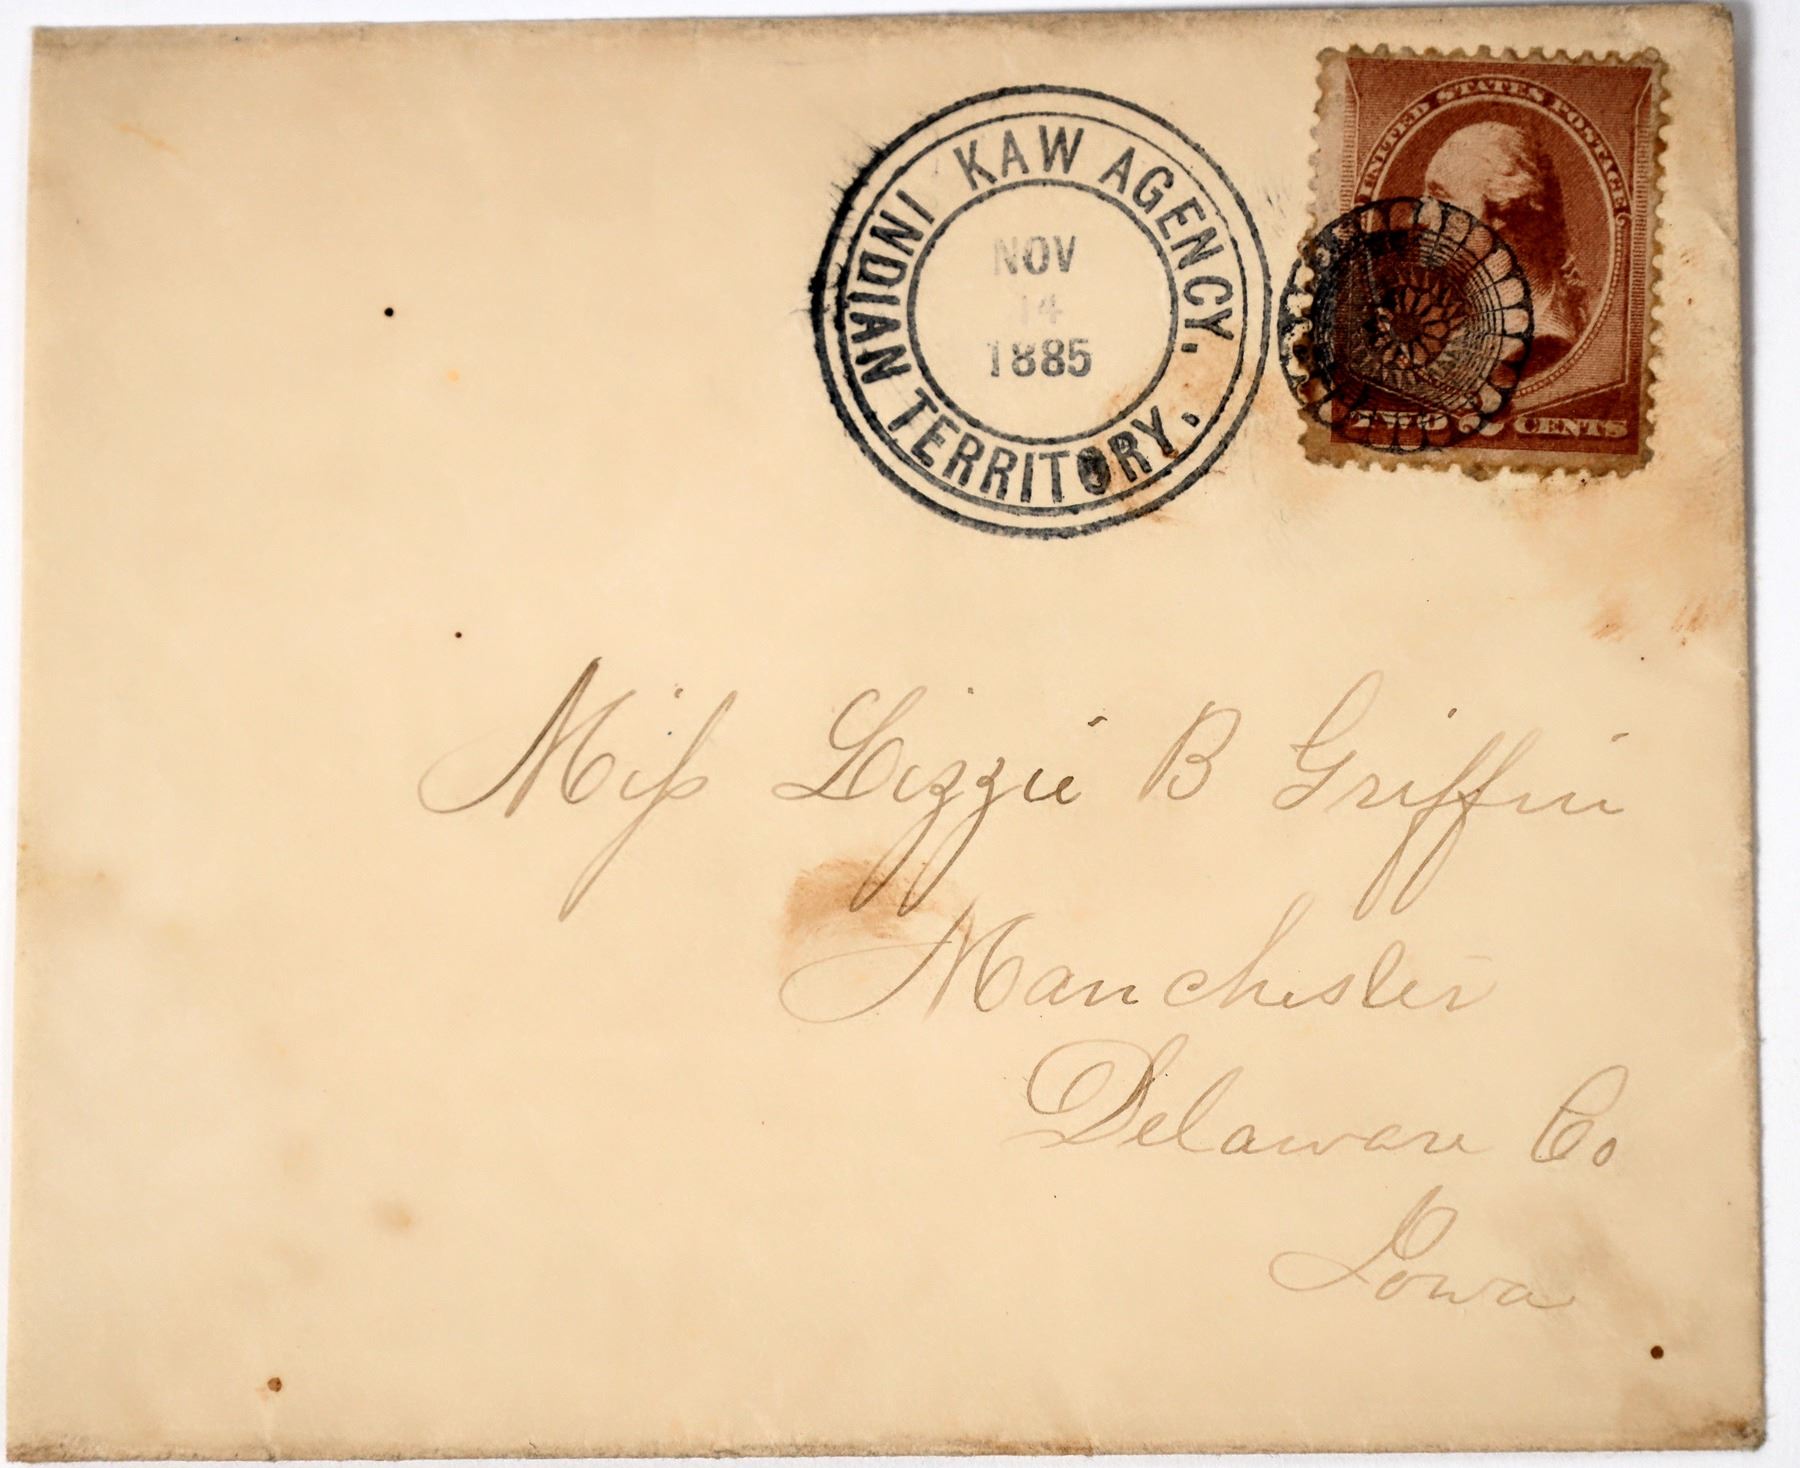 KAW AGENCY.
INDIAN TERRITORY.
NOV
14
1885
UNITED STATES POSTAGE
TWO 2 CENTS
Miſs Lizzie B Griffin
Manchester
Delaware Co
Iowa